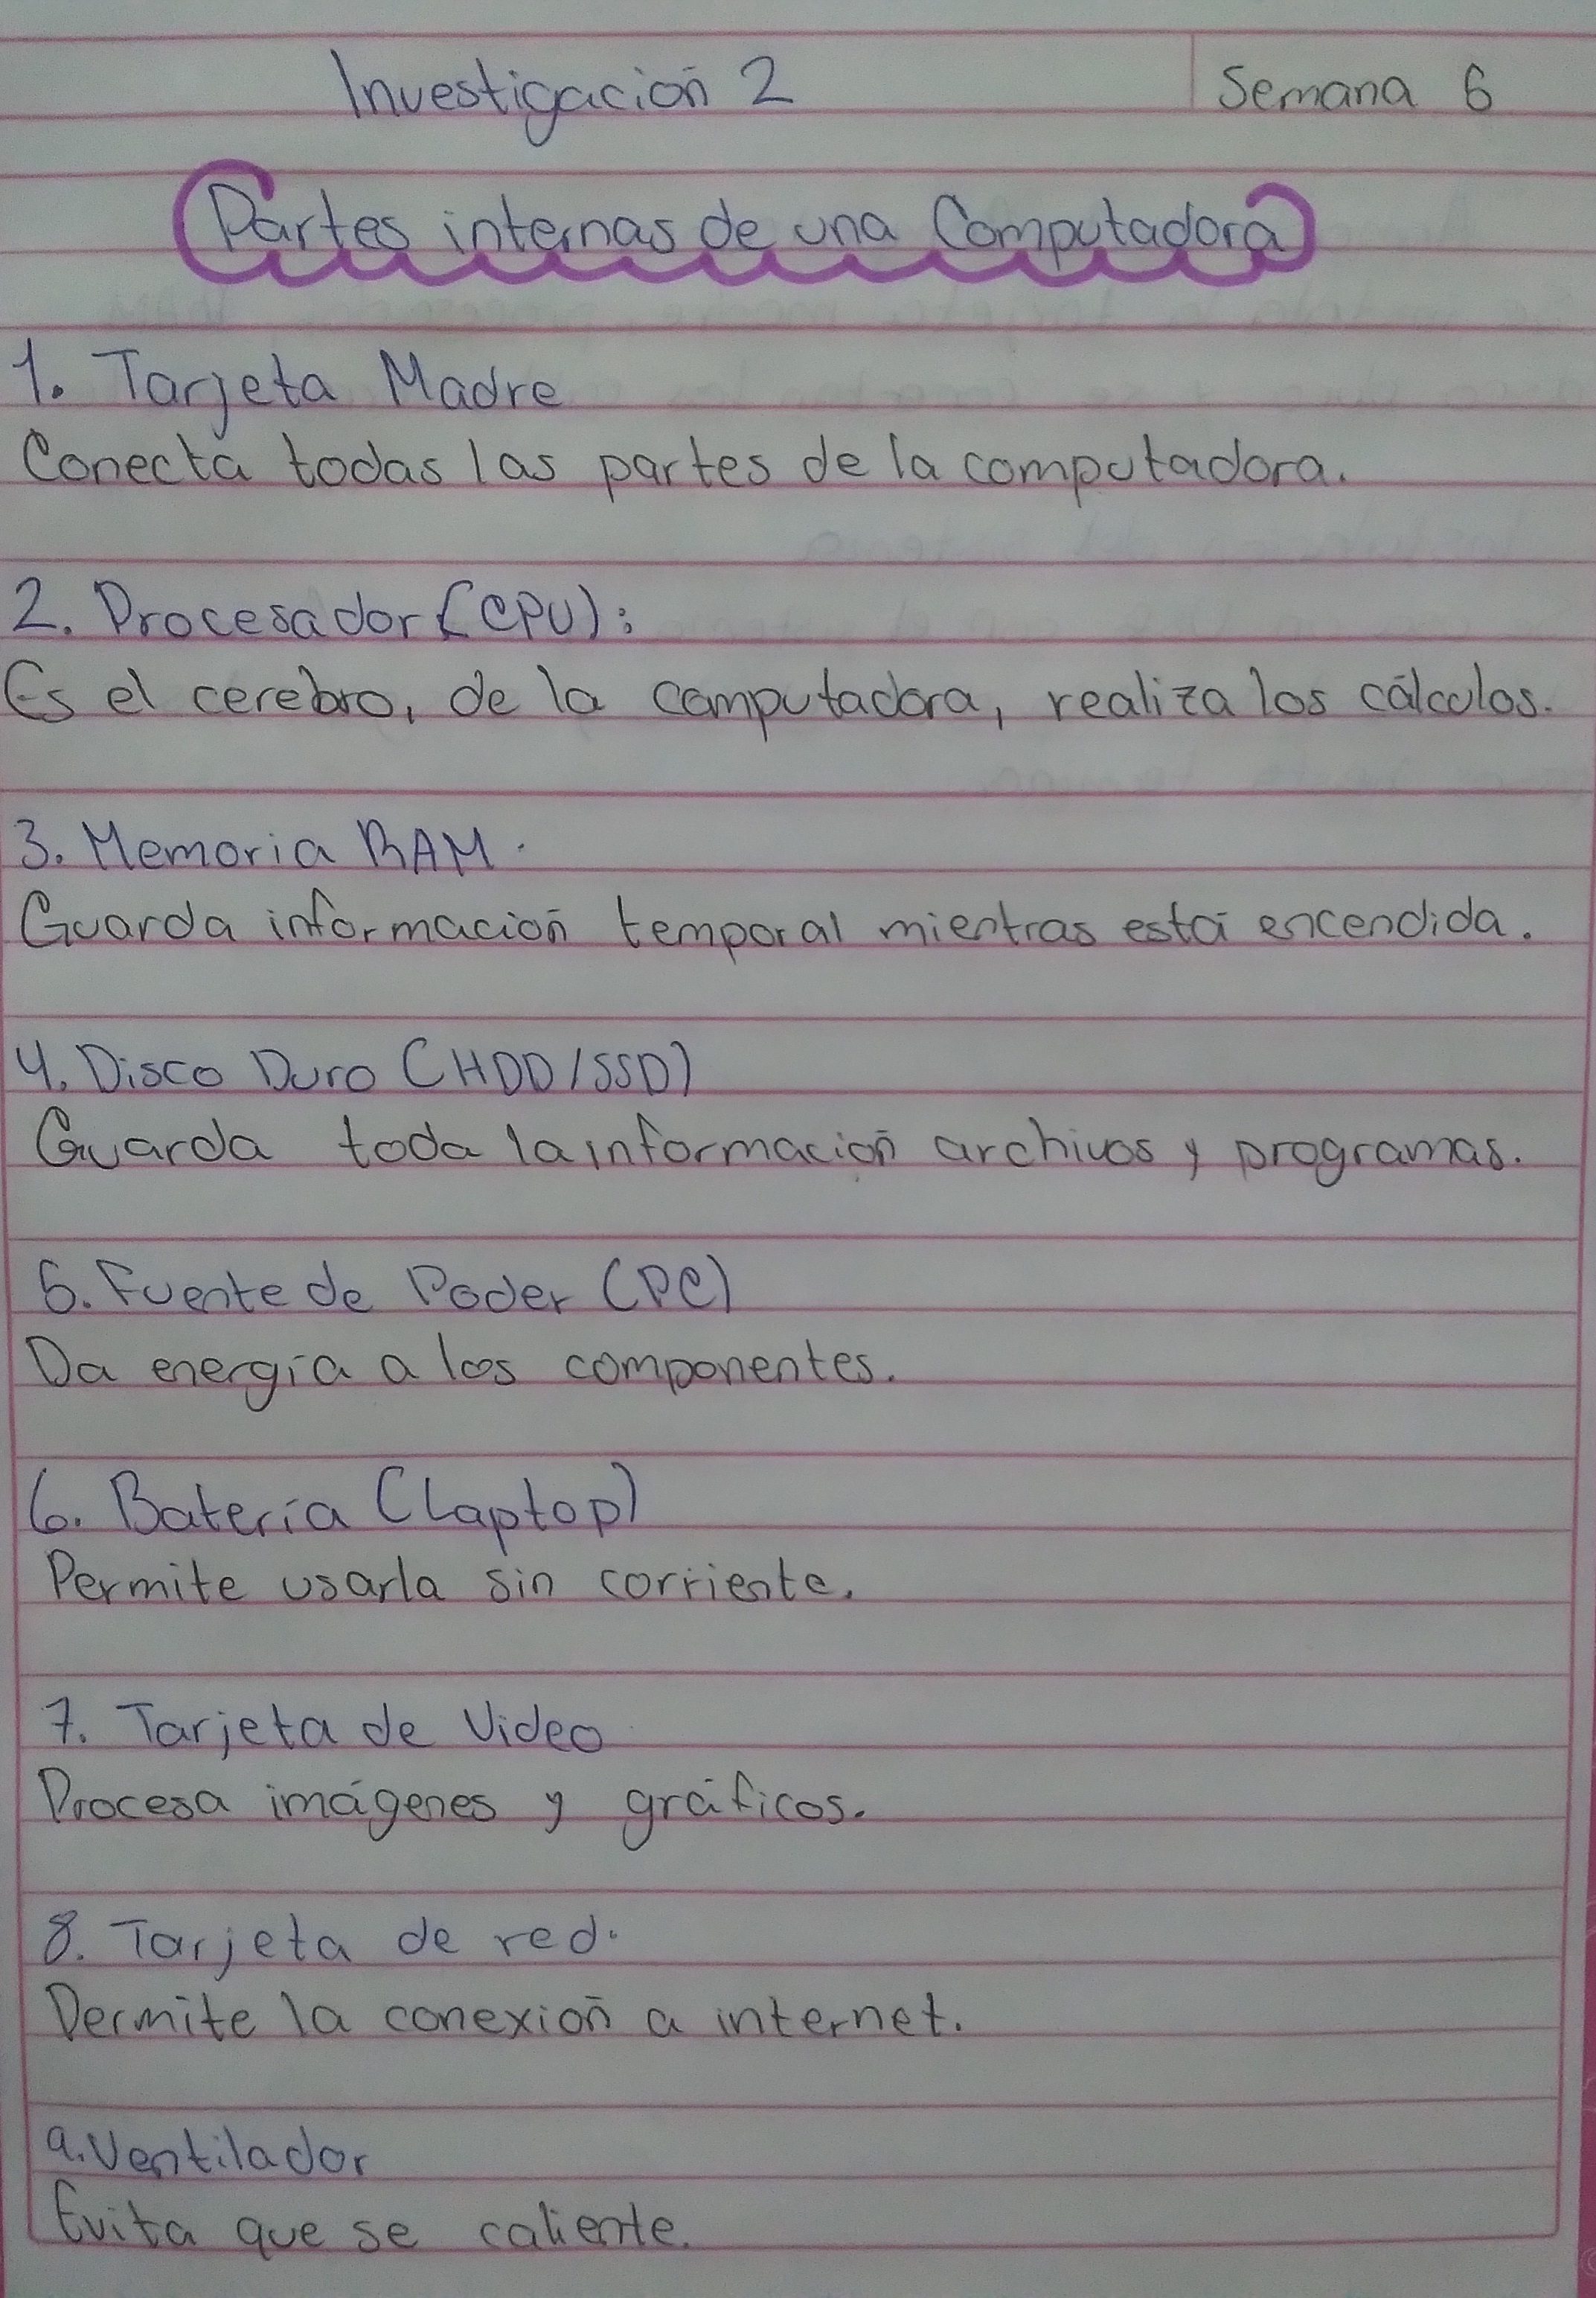 Investigación 2
Semana 6
Partes internas de una Computadora
1. Tarjeta Madre
Conecta todas las partes de la computadora.
2. Procesador (CPU):
Es el cerebro, de la computadora, realiza los cálculos.
3. Memoria RAM.
Guarda información temporal mientras está encendida.
4. Disco Duro (HDD/SSD)
Guarda toda la información archivos y programas.
5. Fuente de Poder (PC)
Da energía a los componentes.
6. Batería (Laptop)
Permite usarla sin corriente.
7. Tarjeta de Video
Procesa imágenes y gráficos.
8. Tarjeta de red.
Permite la conexión a internet.
9. Ventilador
Evita que se caliente.